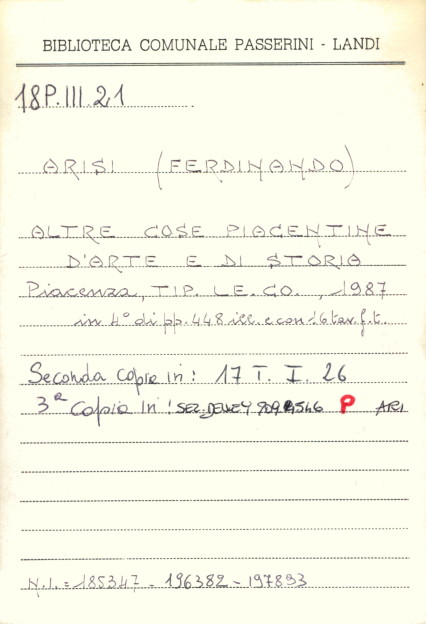 BIBLIOTECA COMUNALE PASSERINI - LANDI
18P.III.21
ARISI (FERDINANDO)
ALTRE COSE PIACENTINE
D'ARTE E DI STORIA
Piacenza, TIP. LE.CO., 1987
in 4° di pp. 448 ill. e con 16 tav. f.t.
Seconda copia in: 17 T. I. 26
3ª Copia in: SEZ. DEWEY 709.4546 P ARI
N.I. = 185347 - 196382 - 197893